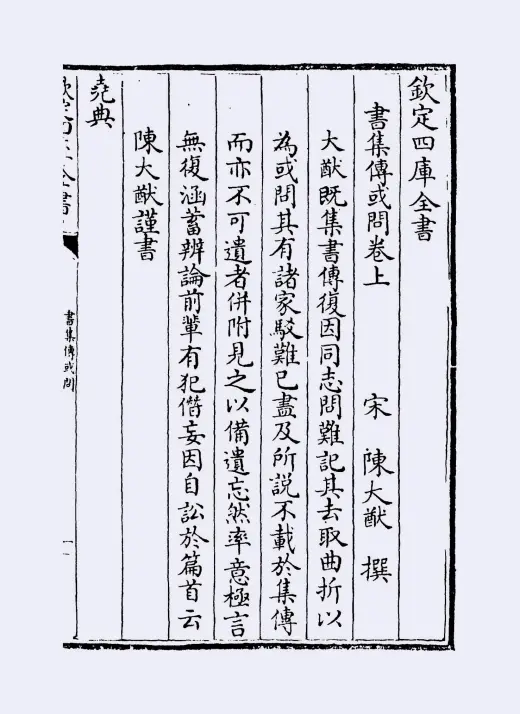 欽定四庫全書
書集傳或問卷上
宋 陳大猷 撰
大猷既集書傳復因同志問難記其去取曲折以
為或問其有諸家駁難已盡及所說不載於集傳
而亦不可遺者併附見之以備遺忘然率意極言
無復涵蓄辨論前輩有犯僭妄因自訟於篇首云
陳大猷謹書
堯典
書集傳或問
一